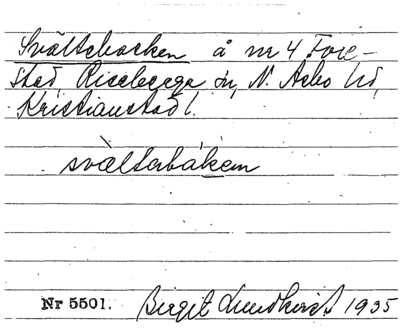 Svältebacken å nr 4 Fore-
stad Riseberga sn, N. Åsbo hd,
Kristianstad l.
svältabákem
Nr 5501. Birgit Lundkvist 1935